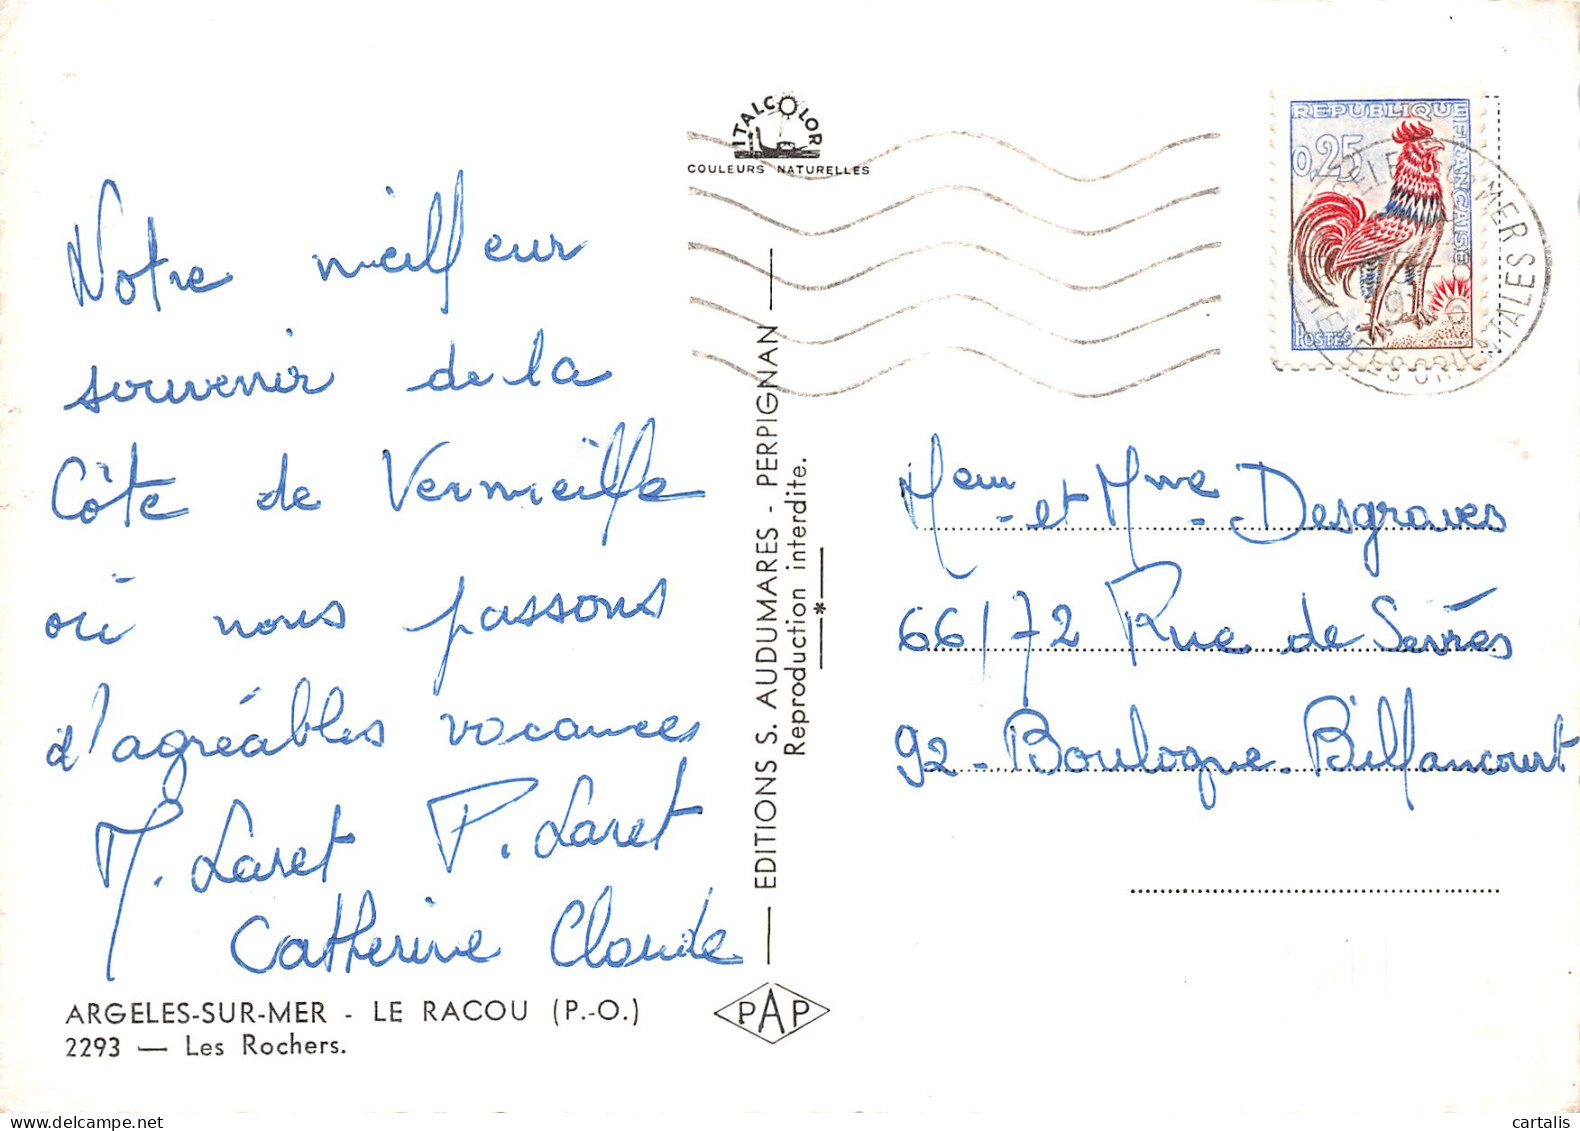 ITALCOLOR
COULEURS NATURELLES
Notre meilleur
souvenir de la
Côte de Vermeille
où nous passons
d'agréables vacances
M. Laret P. Laret
Catherine Claude
ARGELES-SUR-MER - LE RACOU (P.-O.)
2293 — Les Rochers.
EDITIONS S. AUDUMARES - PERPIGNAN
Reproduction interdite.
*
PAP
REPUBLIQUE
FRANÇAISE
0,25
POSTES
S MER
PYRENEES ORIENTALES
Meur et Mme Desgraves
66/72 Rue de Sèvres
92 - Boulogne-Billancourt
cartalis